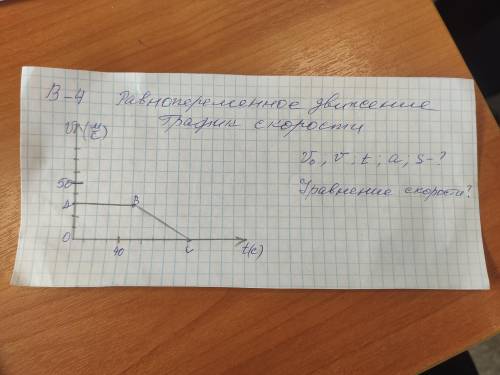 В-4 Равнопеременное движение
График скорости
V (м/с)
V₀, V, t, a, s-?
Уравнение скорости?
50
A B
0 40 C t(c)